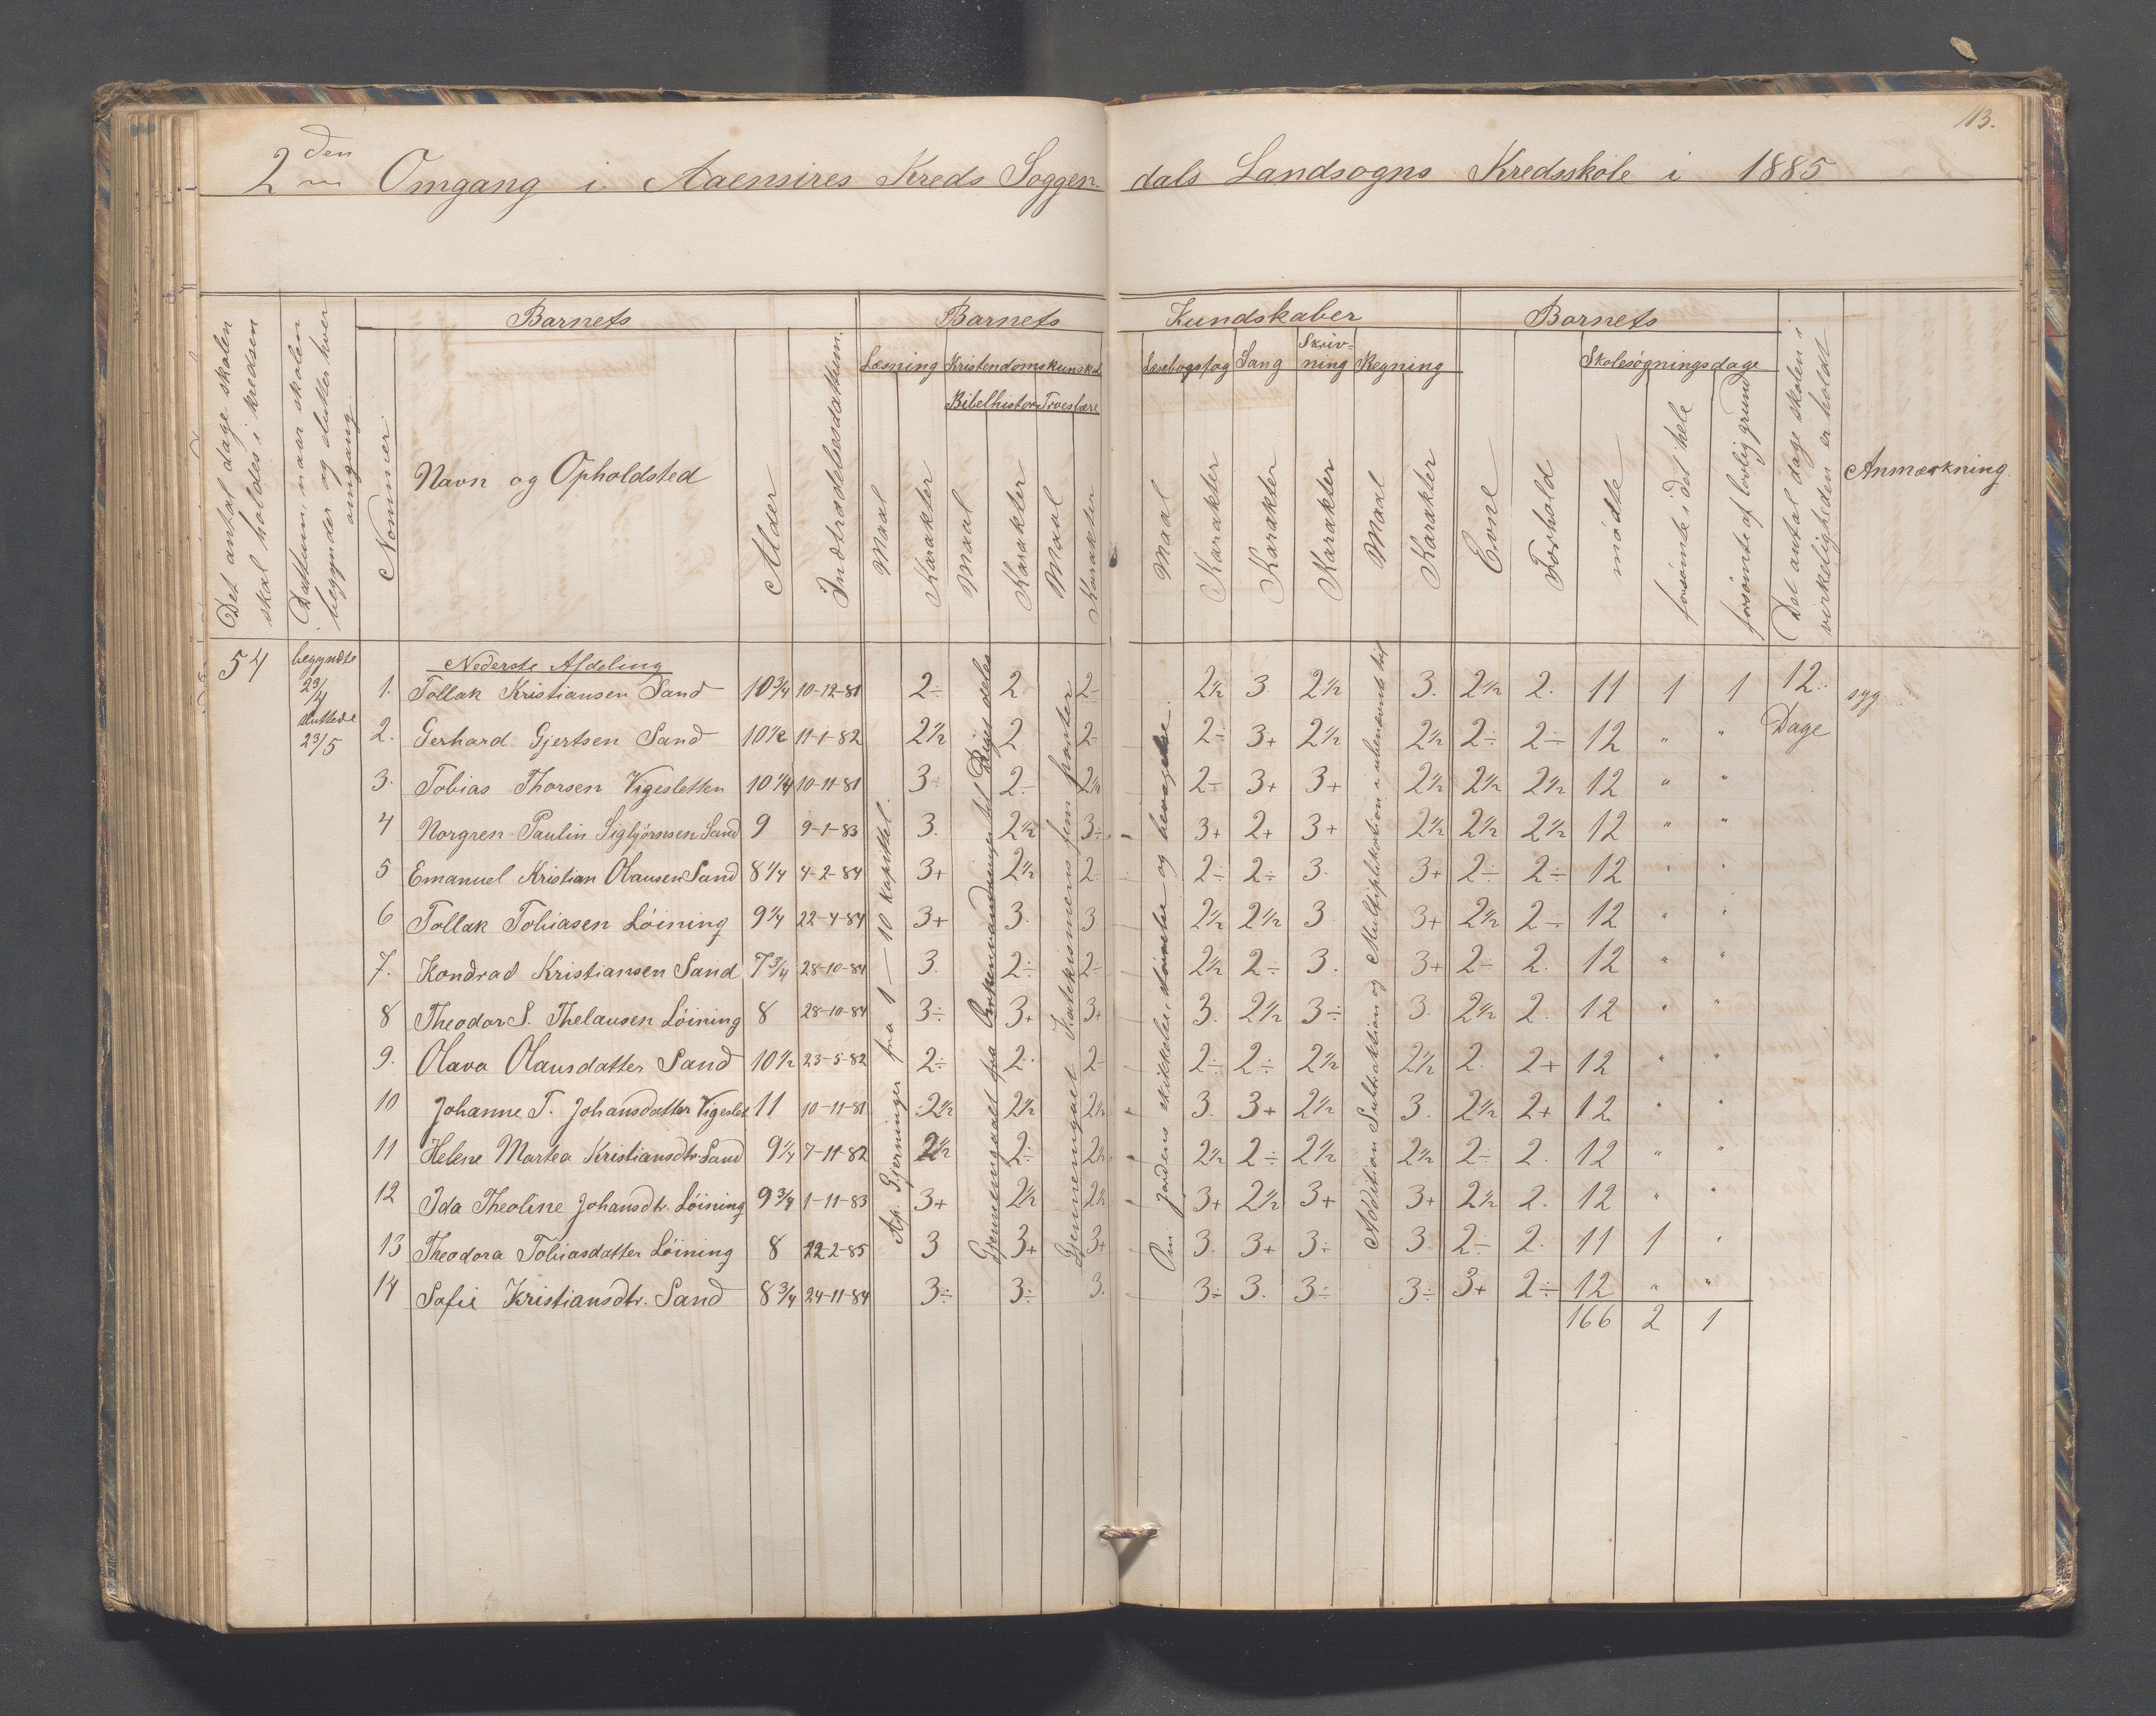 113.
2den Omgang i Aaensires Kreds Soggendals Landsogns Kredsskole i 1885
Det antal dage skolen skal holdes i kredsen
Dattum, naar skolen begynder og slutter hver omgang
Nommer
Barnets
Navn og Opholdsted
Alder
Indtrædelsesdattum
Barnets Kundskaber
Læsning
Maal
Karakter
Kristendomskunskab
Bibelhistorie
Maal
Karakter
Troeslære
Maal
Karakter
Læsebogsfag
Maal
Karakter
Sang
Karakter
Skrivning
Karakter
Regning
Maal
Karakter
Barnets
Evne
Forhold
Skolesøgningsdage
mødte
forsømte i det hele
forsømte af lovlig grund
Det antal dage skolen i virkeligheden er holdt
Anmærkning.
54
begyndte
29/4
sluttede
23/5
Nederste Afdeling
1. Tollak Kristiansen Sand 10 3/4 10-12-81 2÷ 2. 2÷ 2½ 3. 2½ 3. 2½ 2. 11 1 1 12. syg
2. Gerhard Gjertsen Sand 10½ 11-1-82 2½ 2 2÷ 2÷ 3+ 2½ 2½ 2÷ 2÷ 12 " " Dage
3. Tobias Thorsen Vigesletten 10¼ 10-11-81 3÷ 2÷ 2½ 2÷ 3+ 3+ 2½ 2½ 2½ 12 " "
4 Norgren Paulin Sigbjørnsen Sand 9 9-1-83 3. 2½ 3÷ 3+ 2+ 3+ 2½ 2½ 2½ 12 " "
5 Emanuel Kristian Olausen Sand 8¼ 4-2-84 3+ 2½ 2÷ 2÷ 2÷ 3. 3+ 2÷ 2÷ 12 " "
6 Tollak Tobiasen Løining 9¼ 22-4-84 3+ 3. 3. 2½ 2½ 3. 3+ 2½ 2÷ 12 " "
7. Kondrad Kristiansen Sand 7 3/4 28-10-84 3. 2÷ 2÷ 2½ 2÷ 3. 3+ 2÷ 2. 12 " "
8 Theodor S. Thelausen Løining 8 28-10-84 3÷ 3+ 3+ 3. 2½ 3÷ 3. 2½ 2. 12 " "
9. Olava Olausdatter Sand 10½ 23-5-82 2÷ 2. 2÷ 2÷ 2÷ 2½ 2½ 2. 2+ 12 " "
10 Johanne T. Johansdatter Vigeslet 11 10-11-81 2½ 2½ 2½ 3. 3+ 2½ 3. 2½ 2+ 12 " "
11 Helene Martea Kristiansdtr. Sand 9¼ 7-11-82 2½ 2÷ 2½ 2½ 2÷ 2½ 2½ 2÷ 2. 12 " "
12 Ida Theoline Johansdtr. Løining 9 3/4 1-11-83 3+ 2½ 2½ 3+ 2½ 3+ 3+ 2½ 2. 12 " "
13 Theodora Tobiasdatter Løining 8 22-2-85 3 3+ 3+ 3. 3+ 3÷ 3. 2÷ 2. 11 1 "
14 Sofie Kristiansdtr. Sand 8 3/4 24-11-84 3÷ 3÷ 3. 3÷ 3. 3÷ 3÷ 3+ 2÷ 12 " "
166 2 1
Ap. Gjerninger fra 1 — 10 kapittel.
Gjennemgaaet fra Ørkenvandringen til Riget deles
Gjennemgaaet Katekismens fem parter
Om Jordens skikkelse, størrelse og bevægelse.
Addition Subtraktion og Multiplikation i ubenævnte tal